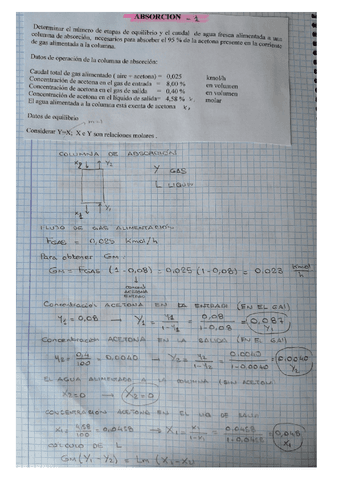 ABSORCION - 1
Determinar el número de etapas de equilibrio y el caudal de agua fresca alimentada a una
columna de absorción, necesarios para absorber el 95 % de la acetona presente en la corriente
de gas alimentada a la columna.
Datos de operación de la columna de absorción:
Caudal total de gas alimentado (aire + acetona) = 0,025 kmol/h
Concentración de acetona en el gas de entrada = 8,00 % en volumen
Concentración de acetona en el gas de salida = 0,40 % en volumen
Concentración de acetona en el líquido de salida= 4,58 % molar
El agua alimentada a la columna está exenta de acetona
Datos de equilibrio
Considerar Y=X; X e Y son relaciones molares.
COLUMNA DE ABSORCIÓN
X2 Y2
Y GAS
L LIQUIDO
X1 Y1
FLUJO DE GAS ALIMENTACIÓN
FGAS = 0,025 Kmol/h
Para obtener Gm:
Gm = FGAS (1-0,08) = 0,025 (1-0,08) = 0,023 Kmol/h
ACETONA
ENTRADA
Concentración ACETONA EN LA ENTRADA (EN EL GAS)
y1 = 0,08 → Y1 = y1/1-y1 = 0.08/1-0.08 = 0,087 Y1
Concentración ACETONA EN LA SALIDA (EN EL GAS)
y2 = 0.4/100 = 0.0040 → Y2 = y2/1-y2 = 0.0040/1-0.0040 = 0.0040 Y2
EL AGUA ALIMENTADA A LA COLUMNA (SIN ACETONA)
x2=0 → X2=0
CONCENTRACIÓN ACETONA EN EL LIQ DE SALIDA
x1 = 4.58/100 = 0.0458 → X1 = x1/1-x1 = 0.0458/1-0.0458 = 0,048 X1
CALCULO DE L
Gm (Y1-Y2) = Lm (X1-X2)